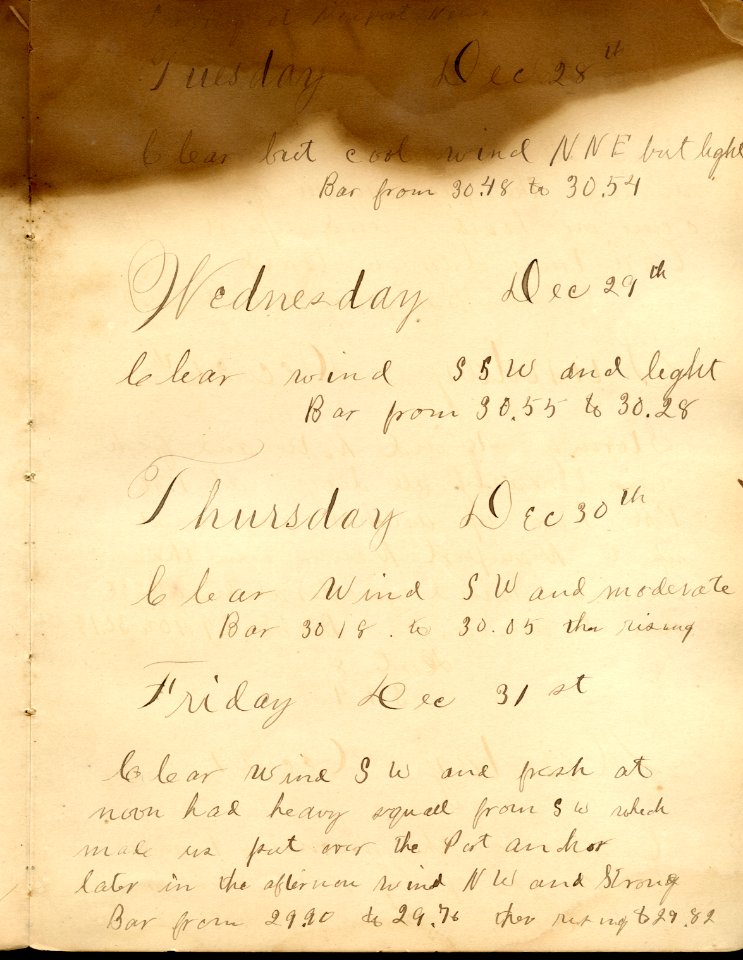 at Newport News
Tuesday Dec 28th
Clear but cool wind NNE but light
Bar from 30.48 to 30.54
Wednesday Dec 29th
Clear wind SSW and light
Bar from 30.55 to 30.28
Thursday Dec 30th
Clear Wind SW and moderate
Bar 3018. to 30.05 then rising
Friday Dec 31st
Clear Wind SW and fresh at
noon had heavy squall from SW which
made us put over the Port anchor
later in the afternoon wind NW and Strong
Bar from 29.90 to 29.76 then rising to 29.82